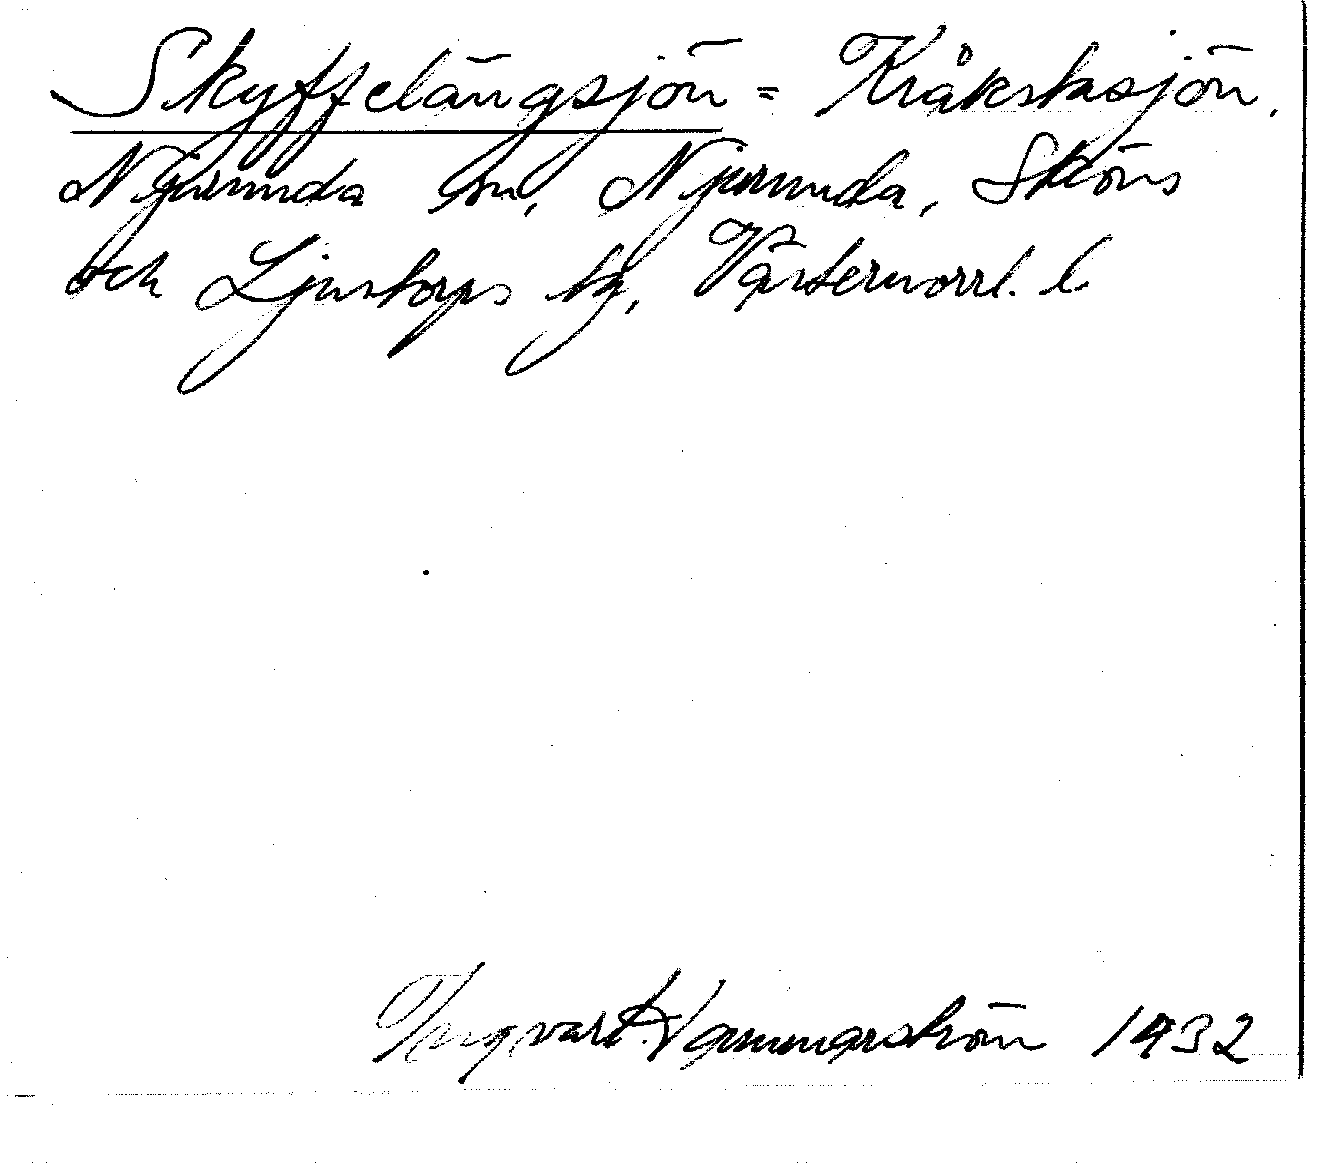 Skyffelängsjön = Kråkstasjön.
Njurunda sn, Njurunda, Sköns
och Ljustorps tg, Västernorrl. l.
Ingvar Hammarström 1932